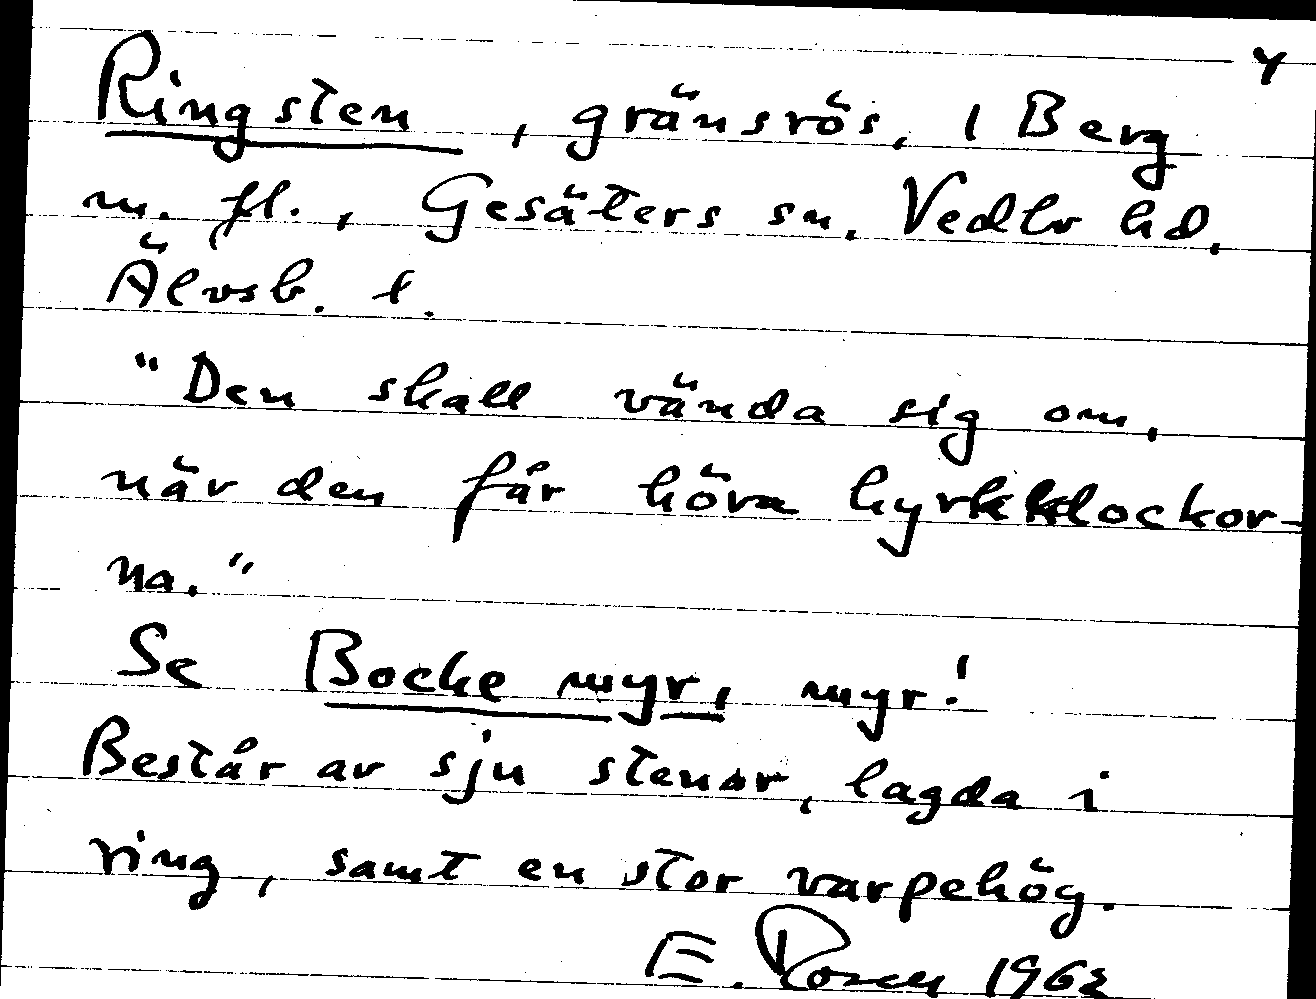 4
Ringsten, gränsrös, 1 Berg
m. fl., Gesäters sn. Vedbo hd.
Älvsb. l.
"Den skall vända sig om,
när den får höra kyrkklockor-
na."
Se Bockemyr, myr!
Består av sju stenar, lagda i
ring, samt en stor varpehög.
E. Rosen 1962